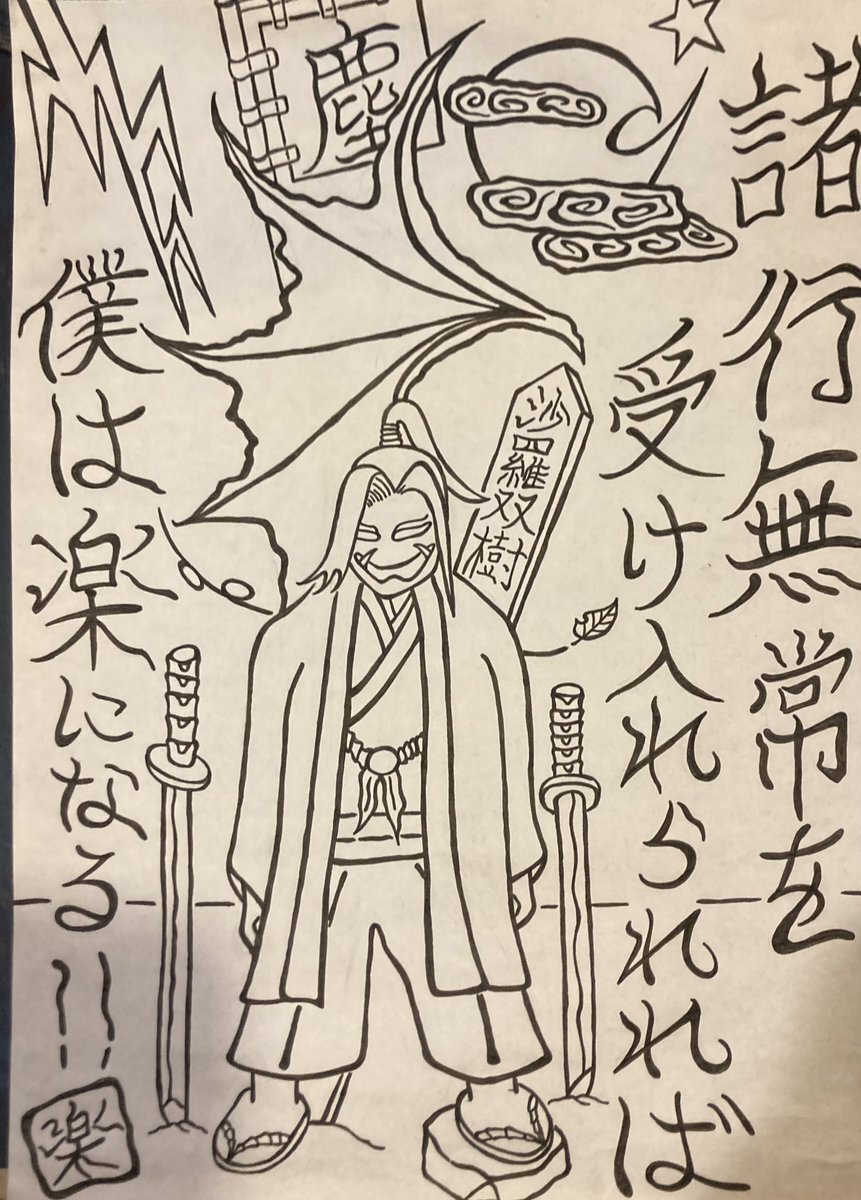 諸行無常を
受け入れられれば
僕は楽になる!!
塵
沙羅双樹
楽